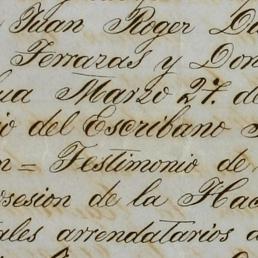 Juan Roger Du
Terrazas y Don
ua Marzo 27. de
io del Escribano
n = Testimonio de
sesion de la Hac
ales arrendatarios